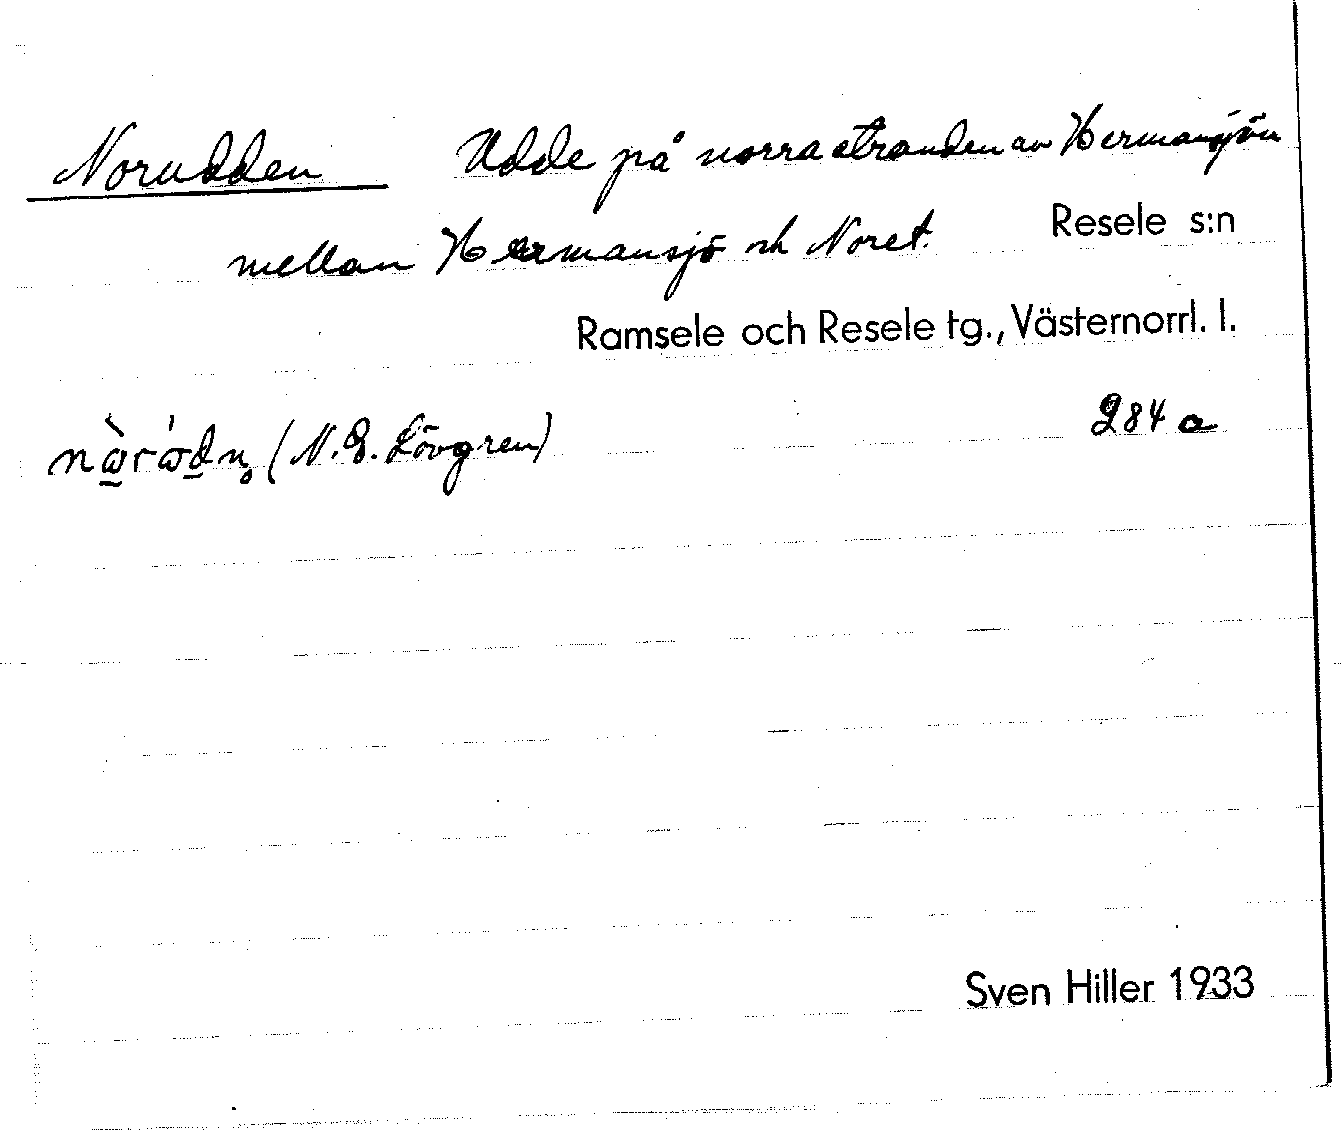 Norudden Udde på norra stranden av Hermansjön
mellan Hermansjö och Noret.
Resele s:n
Ramsele och Resele tg., Västernorrl. l.
(N.E. Lövgren)
284 a
Sven Hiller 1933